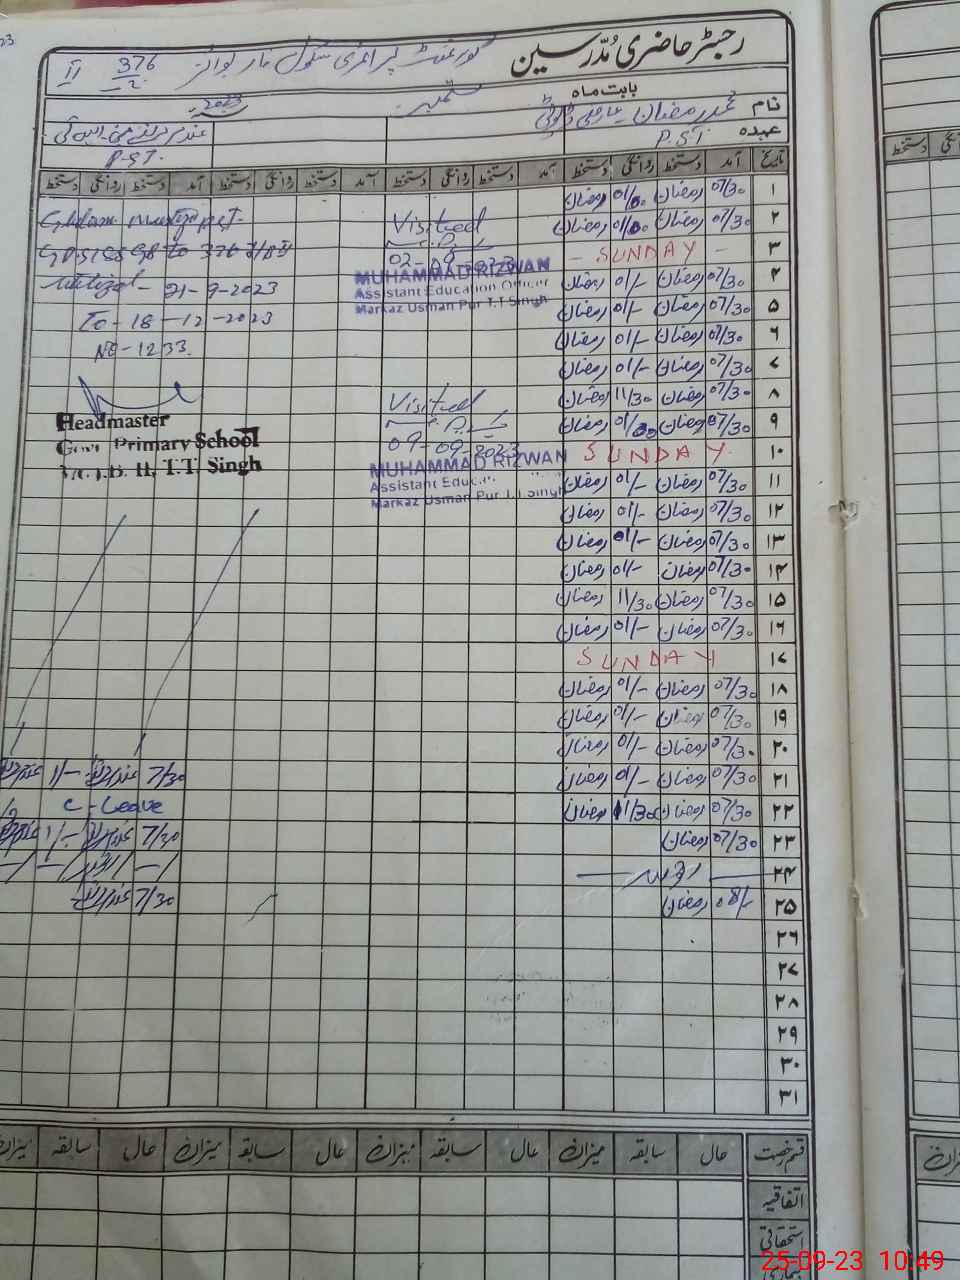 رجسٹر حاضری مُدّرسین
گورنمنٹ پرائمری سکول فار بوائز 376/2 
بابت ماہ ستمبر 2023
نام محمد رمضان
عہدہ P.S.T. P.S.T.
تاریخ آمد دستخط روانگی دستخط آمد دستخط روانگی دستخط آمد دستخط روانگی دستخط آمد دستخط روانگی دستخط
۱ 07/30 رمضان 01/00 رمضان
۲ 07/30 رمضان 01/00 رمضان
۳ - SUNDAY -
۴ 07/30 رمضان 01/- رمضان
۵ 07/30 رمضان 01/- رمضان
۶ 07/30 رمضان 01/- رمضان
۷ 07/30 رمضان 01/- رمضان
۸ 07/30 رمضان 11/30 رمضان
۹ 07/30 رمضان 01/00 رمضان
۱۰ SUNDAY
۱۱ 07/30 رمضان 01/- رمضان
۱۲ 07/30 رمضان 01/- رمضان
۱۳ 07/30 رمضان 01/- رمضان
۱۴ 07/30 رمضان 01/- رمضان
۱۵ 07/30 رمضان 11/30 رمضان
۱۶ 07/30 رمضان 01/- رمضان
۱۷ SUNDAY
۱۸ 07/30 رمضان 01/- رمضان
۱۹ 07/30 رمضان 01/- رمضان
۲۰ 07/30 رمضان 01/- رمضان
۲۱ 07/30 رمضان 01/- رمضان 7/30 1/-
۲۲ 07/30 رمضان 11/30 رمضان C-Leave
۲۳ 07/30 رمضان 7/30 1/-
۲۴ اتوار
۲۵ 08/- رمضان 7/30
۲۶
۲۷
۲۸
۲۹
۳۰
۳۱
Visited
02-09-2023
MUHAMMAD RIZWAN
Assistant Education Officer
Markaz Usman Pur T.T.Singh
Visited
09-09-2023
MUHAMMAD RIZWAN
Assistant Educa
Markaz Usman Pur T.T.Singh
to 376 J/B II
- 21-9-2023
To - 18-12-2023
NO-1233.
Headmaster
Govt. Primary School
J.B. II, T.T. Singh
قسم رخصت حال سابقہ میزان حال سابقہ میزان حال سابقہ میزان حال سابقہ میزان
اتفاقیہ
استحقاقی
بیماری
25-09-23 10:49